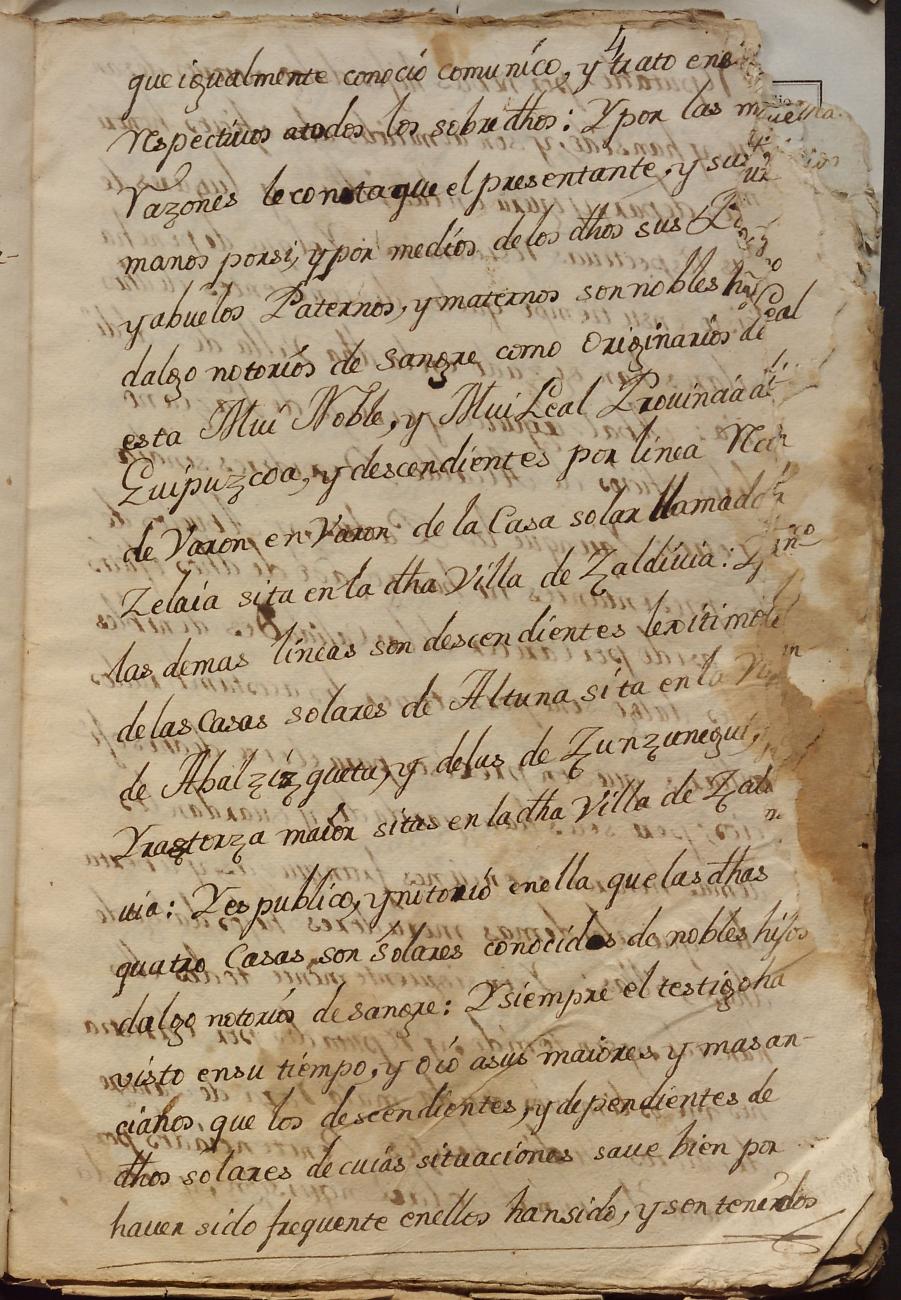 4
que igualmente conoció comunico, y trato en
respectivos atodos los sobre dhos: Y por las
razones le constaque el presentante, y sus
manos porsi, y por medios delos dhos sus
y abuelos Paternos, y maternos son nobles
dalgo notorios de sangre como originarios de
esta Mui Noble, y Mui Leal Provincia
Guipuzcoa, y descendientes por linea
de Varon en Varon de la Casa solar llamado
Zelaia sita en la dha Villa de Zaldiuia:
las demas lineas son descendientes
delas Casas solares de Altuna sita en la
de Abalzizqueta, y delas de Zunzunegui,
Yraztorza maior sitas en la dha Villa de
uia: Y es publico, y notorio enella que las dhas
quatro Casas son solares conocidos de nobles hijos
dalgo notorios de sangre: Y siempre el testigo ha
visto en su tiempo, y oió asus maiores y mas an-
cianos que los descendientes, y dependientes de
dhos solares de cuias situaciones saue bien por
hauer sido frequente enellos han sido, y son tenidos